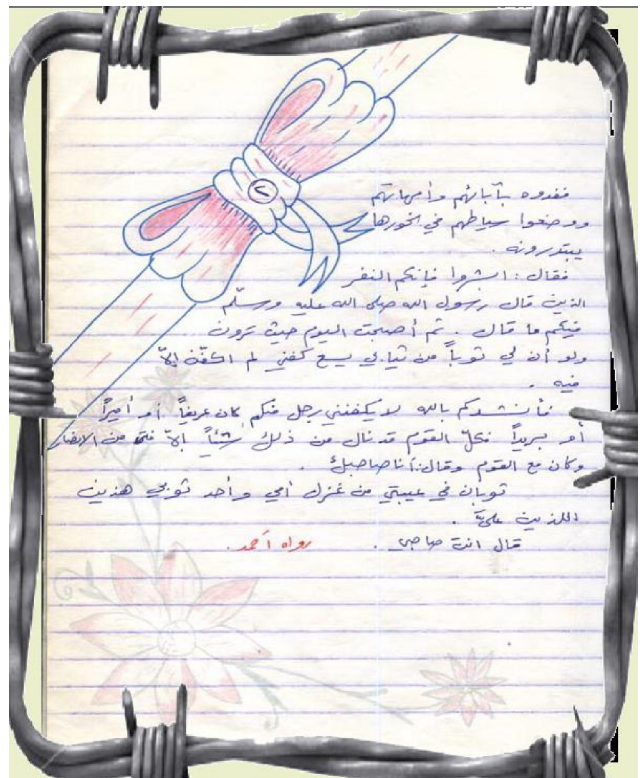 ٢
ففدوه بآبائهم وأمهاتهم
ووضعوا سياطهم في نحورها
يبتدرونه .
فقال : ابشروا فإنكم النفر
الذين قال رسول الله صلى الله عليه وسلم
فيكم ما قال . ثم أصبحت اليوم حيث ترون
ولو أن لي ثوباً من ثيابي يسع كفني لم اكفن إلا
فيه .
فأنشدكم بالله لا يكفنني رجل منكم كان عريفاً أو أميراً
أو بريداً فكل القوم قد نال من ذلك شيئاً إلا فتى من الانصار
وكان مع القوم وقال : أنا صاحبك
ثوبان في عيبتي من غزل أمي وأحد ثوبي هذين
اللذين عليّ .
قال انت صاحبي . رواه أحمد .